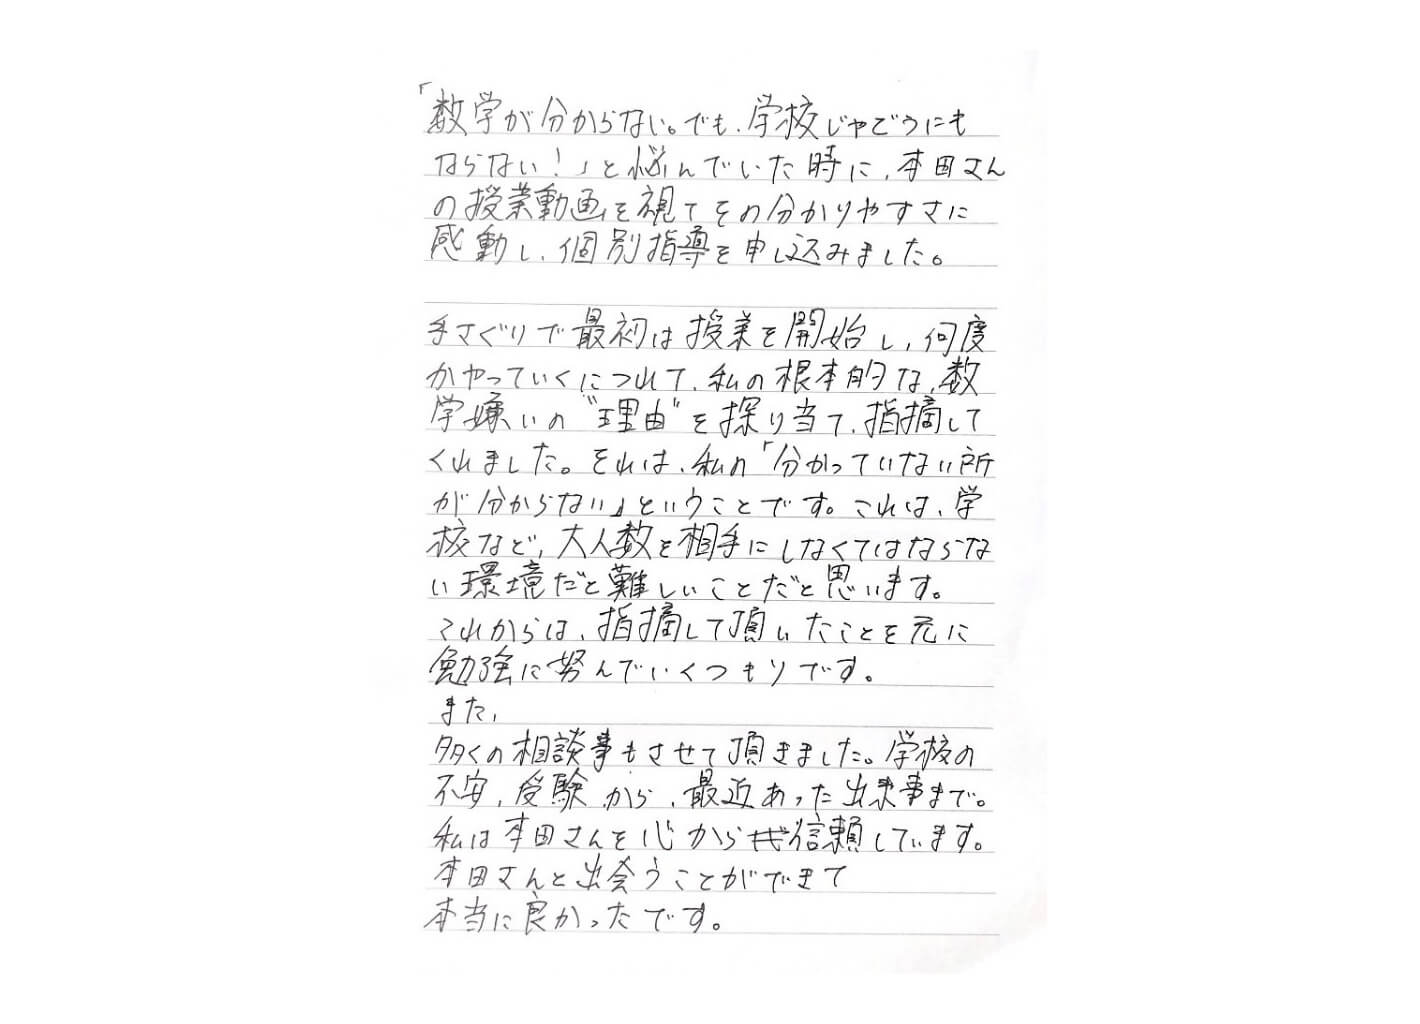 「数学が分からない。でも、学校じゃどうにも
ならない!」と悩んでいた時に、本田さん
の授業動画を視てその分かりやすさに
感動し、個別指導を申し込みました。
手さぐりで最初は授業を開始し、何度
かやっていくにつれて、私の根本的な、数
学嫌いの"理由"を探り当て、指摘して
くれました。それは、私の「分かっていない所
が分からない」ということです。これは、学
校など、大人数を相手にしなくてはならな
い環境だと難しいことだと思います。
これからは、指摘して頂いたことを元に
勉強に努んでいくつもりです。
また、
多くの相談事もさせて頂きました。学校の
不安、受験から、最近あった出来事まで。
私は本田さんを心から信頼しています。
本田さんと出会うことができて
本当に良かったです。